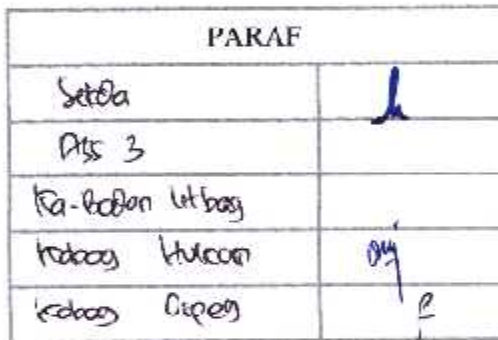 PARAF
Setda
Ass 3
Ka-Badan Litbang
Kabag Hukum
Kabag